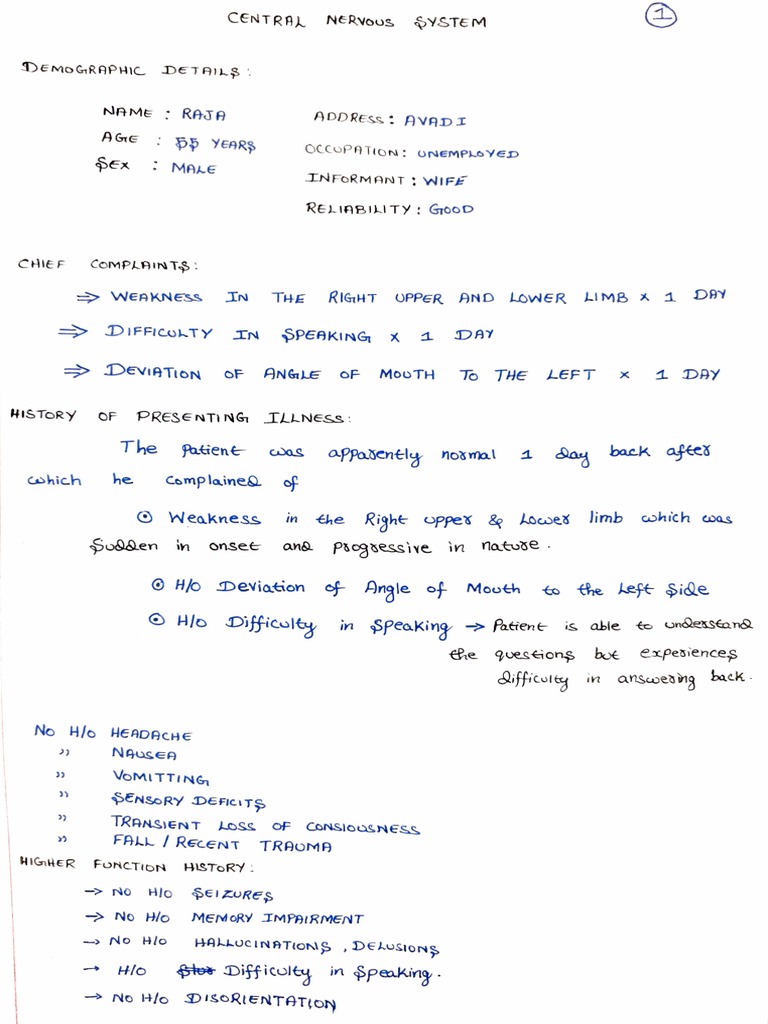 CENTRAL NERVOUS SYSTEM
1
DEMOGRAPHIC DETAILS:
NAME : RAJA
ADDRESS: AVADI
AGE : 55 YEARS
OCCUPATION: UNEMPLOYED
SEX : MALE
INFORMANT: WIFE
RELIABILITY: GOOD
CHIEF COMPLAINTS:
⇒ WEAKNESS IN THE RIGHT UPPER AND LOWER LIMB x 1 DAY
⇒ DIFFICULTY IN SPEAKING x 1 DAY
⇒ DEVIATION OF ANGLE OF MOUTH TO THE LEFT x 1 DAY
HISTORY OF PRESENTING ILLNESS:
The patient was apparently normal 1 day back after
which he complained of
⊙ Weakness in the Right upper & Lower limb which was
Sudden in onset and progressive in nature.
⊙ H/o Deviation of Angle of Mouth to the Left Side
⊙ H/o Difficulty in Speaking → Patient is able to understand
the questions but experiences
difficulty in answering back.
NO H/o HEADACHE
" NAUSEA
" VOMITTING
" SENSORY DEFICITS
" TRANSIENT LOSS OF CONSIOUSNESS
" FALL / RECENT TRAUMA
HIGHER FUNCTION HISTORY:
→ NO H/o SEIZURES
→ NO H/o MEMORY IMPAIRMENT
→ NO H/o HALLUCINATIONS, DELUSIONS
→ H/o Difficulty in Speaking.
→ NO H/o DISORIENTATION